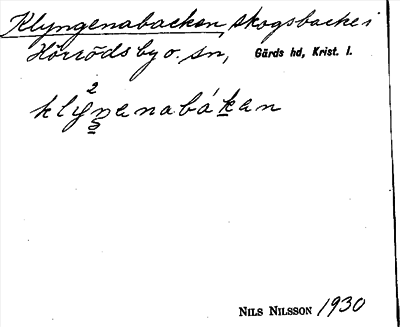 Klyngenabacken, skogsbacke i
Hörröds by o. sn, Gärds hd, Krist. l.
2
klyŋenabákan
NILS NILSSON 1930